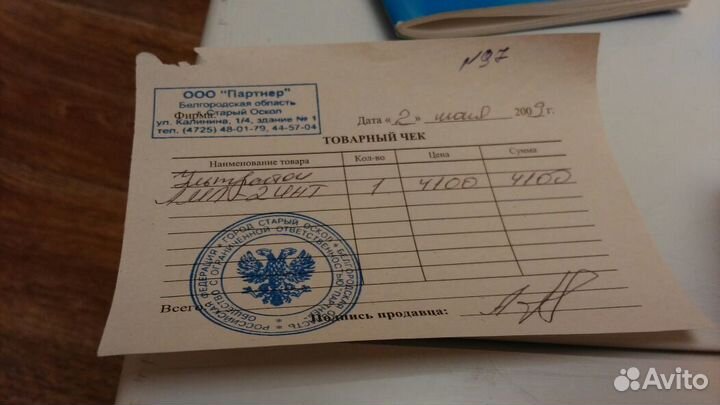 №97
ООО "Партнер"
Белгородская область
г. Старый Оскол
ул. Калинина, 1/4, здание № 1
тел. (4725) 48-01-79, 44-57-04
Фирма
Дата «2» мая 2009 г.
ТОВАРНЫЙ ЧЕК
Наименование товара Кол-во Цена Сумма
1 4100 4100
РОССИЙСКАЯ ФЕДЕРАЦИЯ * ГОРОД СТАРЫЙ ОСКОЛ * БЕЛГОРОДСКАЯ ОБЛАСТЬ *
ОБЩЕСТВО С ОГРАНИЧЕННОЙ ОТВЕТСТВЕННОСТЬЮ
Всего
Подпись продавца:
Avito